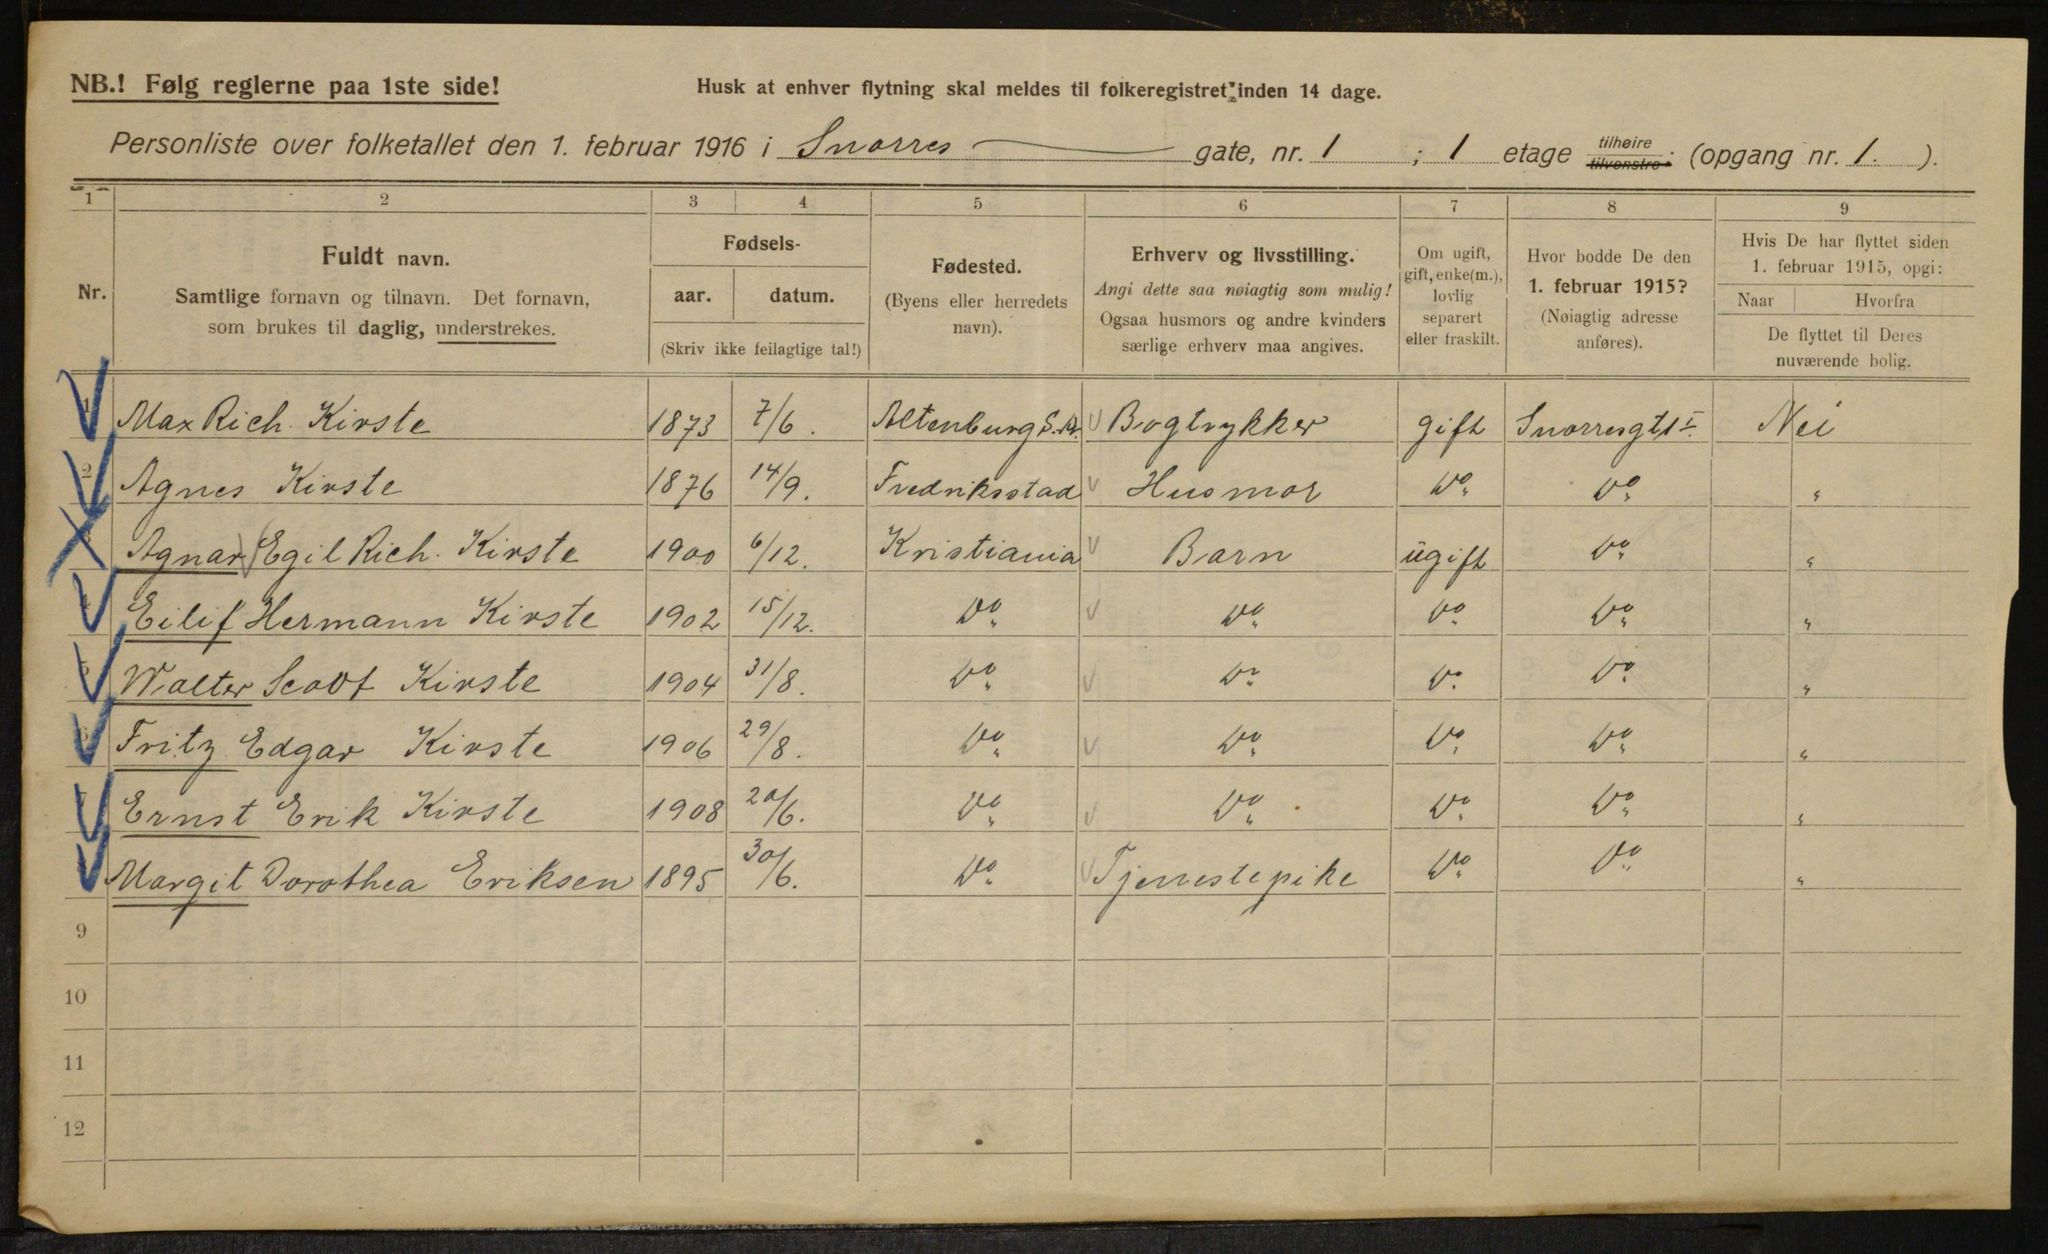 NB.! Følg reglerne paa 1ste side!
Husk at enhver flytning skal meldes til folkeregistret inden 14 dage.
Personliste over folketallet den 1. februar 1916 i Snorres gate, nr. 1 ; 1 etage tilhøire tilvenstre. (opgang nr. 1. ).
1 2 3 4 5 6 7 8 9
Nr.
Fuldt navn.
Samtlige fornavn og tilnavn. Det fornavn,
som brukes til daglig, understrekes.
Fødsels-
aar. datum.
(Skriv ikke feilagtige tal!)
Fødested.
(Byens eller herredets
navn).
Erhverv og livsstilling.
Angi dette saa nøiagtig som mulig!
Ogsaa husmors og andre kvinders
særlige erhverv maa angives.
Om ugift,
gift, enke(m.),
lovlig
separert
eller fraskilt.
Hvor bodde De den
1. februar 1915?
(Nøiagtig adresse
anføres).
Hvis De har flyttet siden
1. februar 1915, opgi:
Naar Hvorfra
De flyttet til Deres
nuværende bolig.
1 Max Rich. Kirste 1873 7/6. Altenburg S.A. Bogtrykker gift Snorresgt 1 I. Nei
2 Agnes Kirste 1876 14/9. Fredriksstad Husmor Do Do "
3 Agnar (Egil Rich. Kirste 1900 6/12. Kristiania Barn ugift Do "
4 Eilif Hermann Kirste 1902 15/12. Do Do Do Do "
5 Walter Scott Kirste 1904 31/8. Do Do Do Do "
6 Fritz Edgar Kirste 1906 29/8. Do Do Do Do "
7 Ernst Erik Kirste 1908 20/6. Do Do Do Do "
Margit Dorothea Eriksen 1895 30/6. Do Tjenestepike Do Do "
9
10
11
12